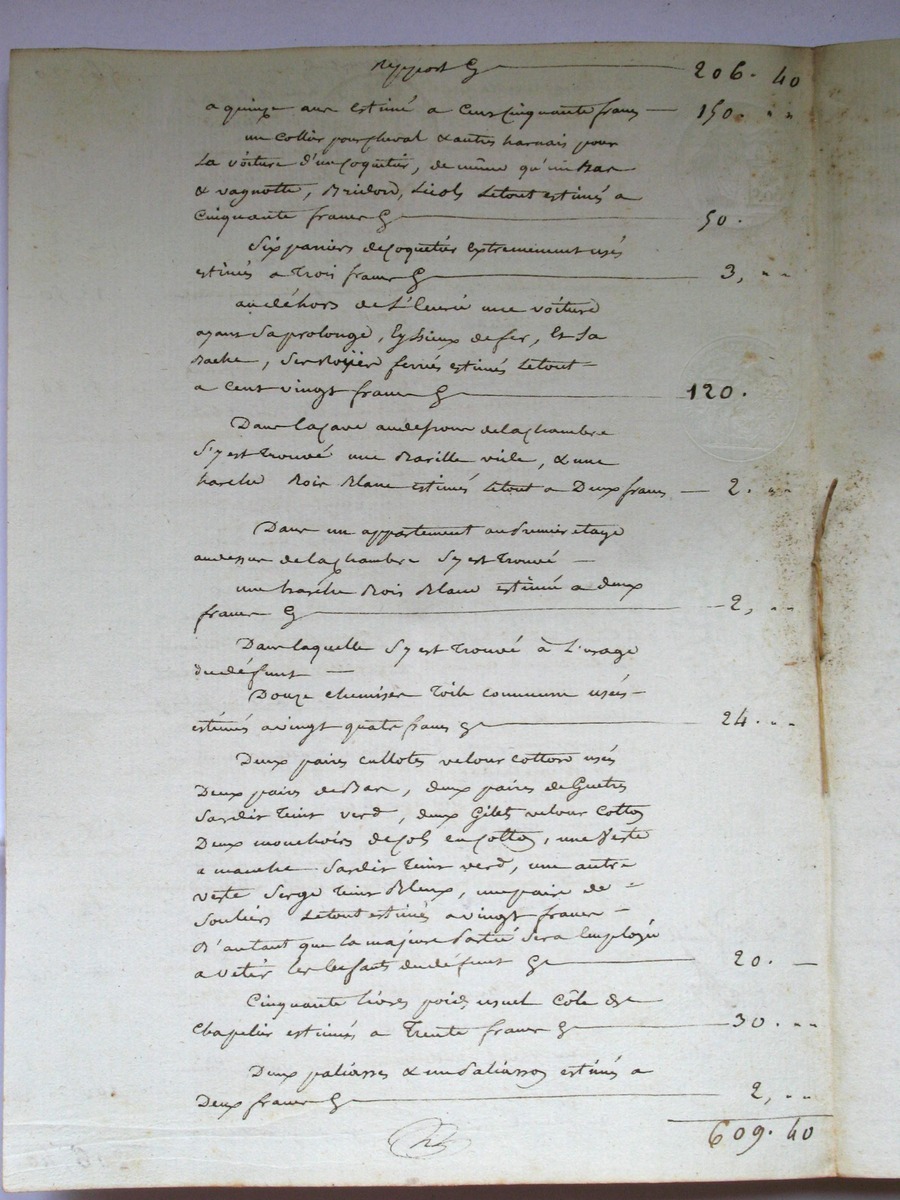 Rapport 206. 40
a quinze ans estimé a Cent Cinquante francs 150.
un Collier pour cheval & autres harnais pour
La voiture d'un coquetier, de même qu'un Bas
& vagnotte, Bridon, Licols Letout estimés a
Cinquante francs 50.
Six paniers de coquetier Extremement usés
estimés a Trois francs 3,
au déhors de L'Ecurie une voiture
ayant sa prolonge, Eyssieux de fer, Et sa
Bache, Ses Roües ferrés estimés Letout
a Cent vingt francs 120.
Dans la cave au dessous de la chambre
S'y est Trouvé une Barille vide, & une
Bois Blanc estimés Letout a Deux francs 2.
Dans un appartement au premier etage
au dessus de la chambre S'y est Trouvé
une Bois Blanc estimé a deux
francs 2,
Dans laquelle S'y est Trouvé à L'usage
du défunt
Douze chemises Toile commune usés
estimés a vingt quatre francs 24.
Deux paires cullotes velour cotton usés
Deux paires de Bas, deux paires de Guetres
Sardis Teint verd, deux Gilet velour Cotton
Deux mouchoirs de col en cotton, une Veste
a manche Sardis Teint verd, une autre
veste Serge Teint Bleux, une paire de
Souliers Letout estimés a vingt francs
D'autant que la majeure Partie Sera Employée
a vetir les Enfants du défunt 20.
Cinquante livres poids usuel Côte de
Chapelier estimés a Trente francs 30.
Deux paliasses & un Paliasson estimés a
Deux francs 2,
609. 40